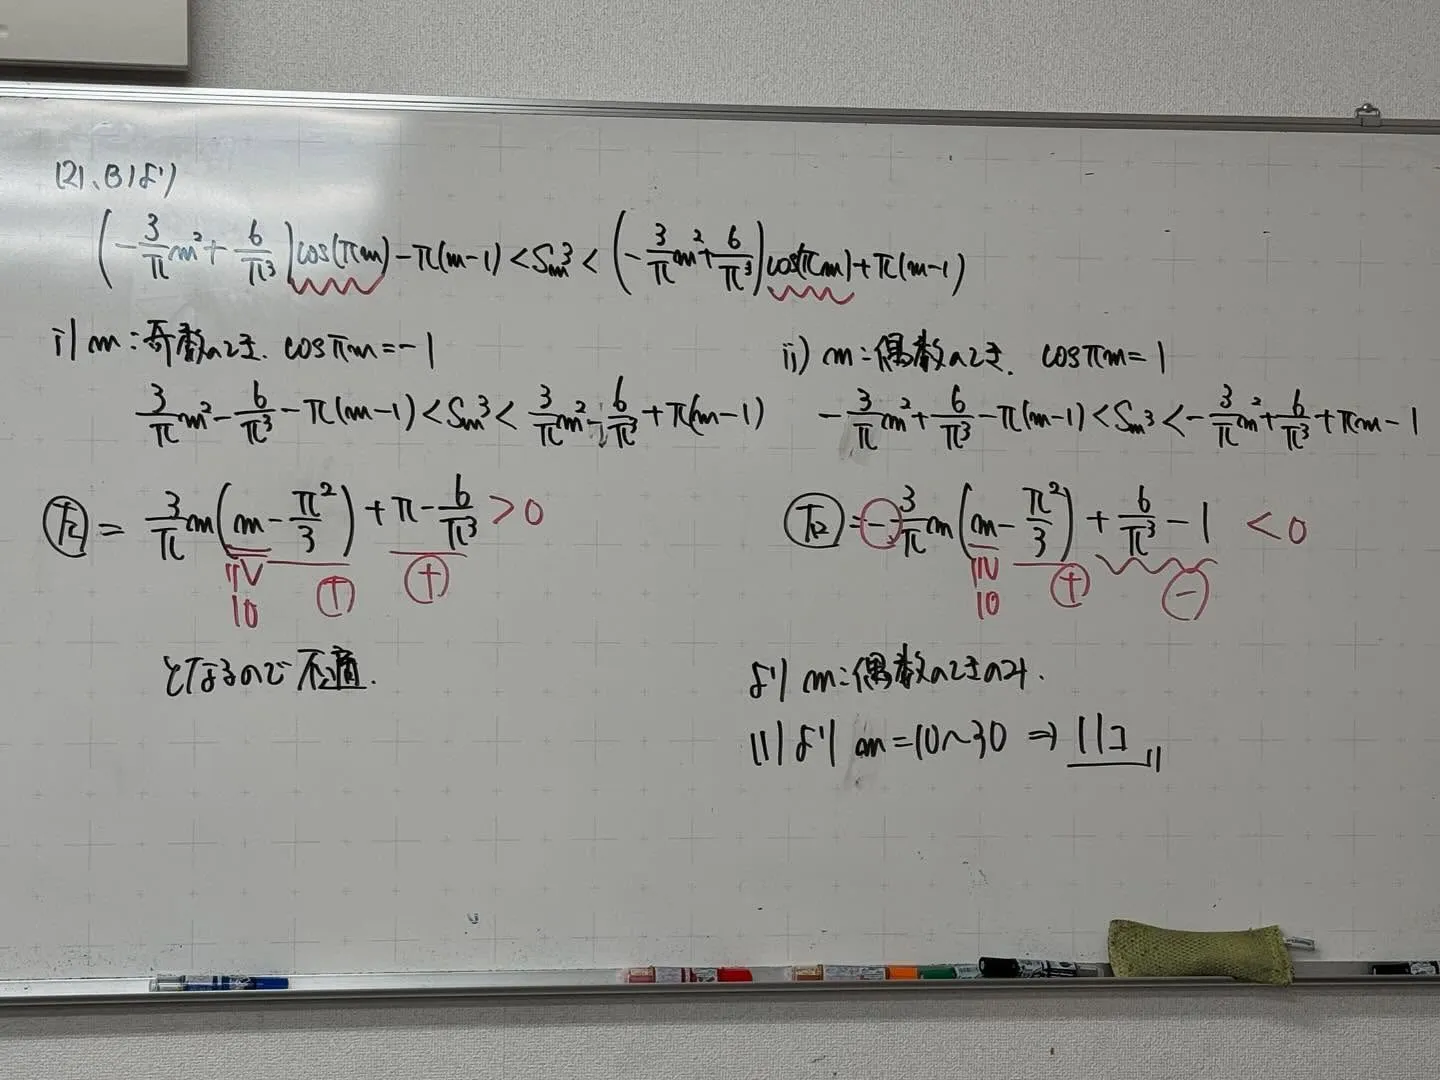 (2)、(3)より
(-3/π m² + 6/π³)cos(πm) - π(m-1) < Sm³ < (-3/π m² + 6/π³)cos(πm) + π(m-1)
i) m:奇数のとき. cosπm = -1
3/π m² - 6/π³ - π(m-1) < Sm³ < 3/π m² - 6/π³ + π(m-1)
左 = 3/π m(m - π²/3) + π - 6/π³ > 0
≧
10 ⊕ ⊕
となるので不適.
ii) m:偶数のとき. cosπm = 1
-3/π m² + 6/π³ - π(m-1) < Sm³ < -3/π m² + 6/π³ + πm - 1
右 = -3/π m(m - π²/3) + 6/π³ - 1 < 0
≧
10 ⊕ ⊖
より m:偶数のときのみ.
(1)より m = 10〜30 ⇒ 11コ